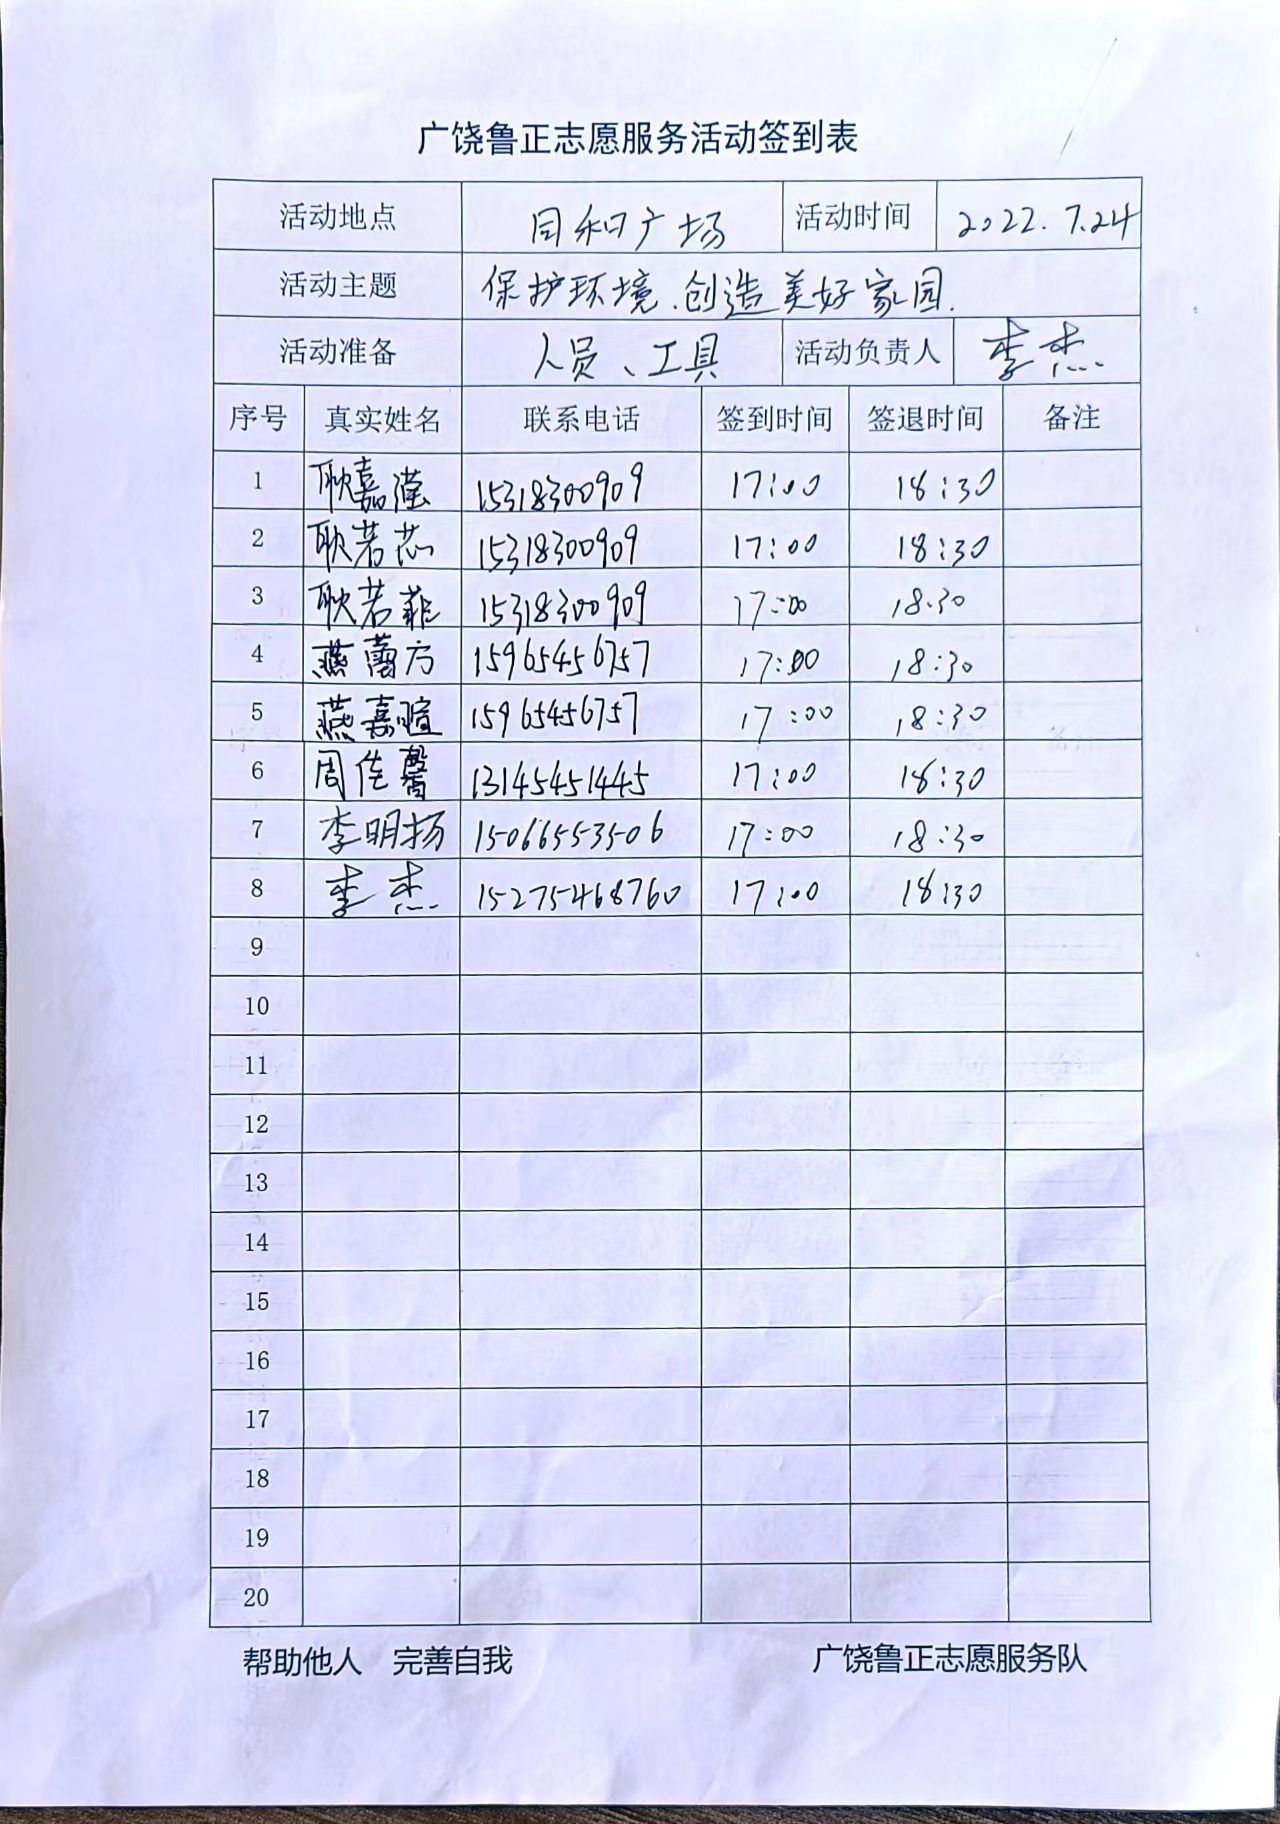 广饶鲁正志愿服务活动签到表
活动地点 同和广场 活动时间 2022.7.24
活动主题 保护环境.创造美好家园.
活动准备 人员、工具 活动负责人 李杰
序号 真实姓名 联系电话 签到时间 签退时间 备注
1 耿嘉滢 15318300909 17:00 18:30
2 耿若芯 15318300909 17:00 18:30
3 耿若菲 15318300909 17:00 18.30
4 燕 方 15965456757 17:00 18:30
5 燕嘉暄 15965456757 17:00 18:30
6 周佳馨 13145451445 17:00 18:30
7 李明扬 15066553506 17:00 18:30
8 李杰 15275468760 17:00 18:30
9
10
11
12
13
14
15
16
17
18
19
20
帮助他人 完善自我 广饶鲁正志愿服务队